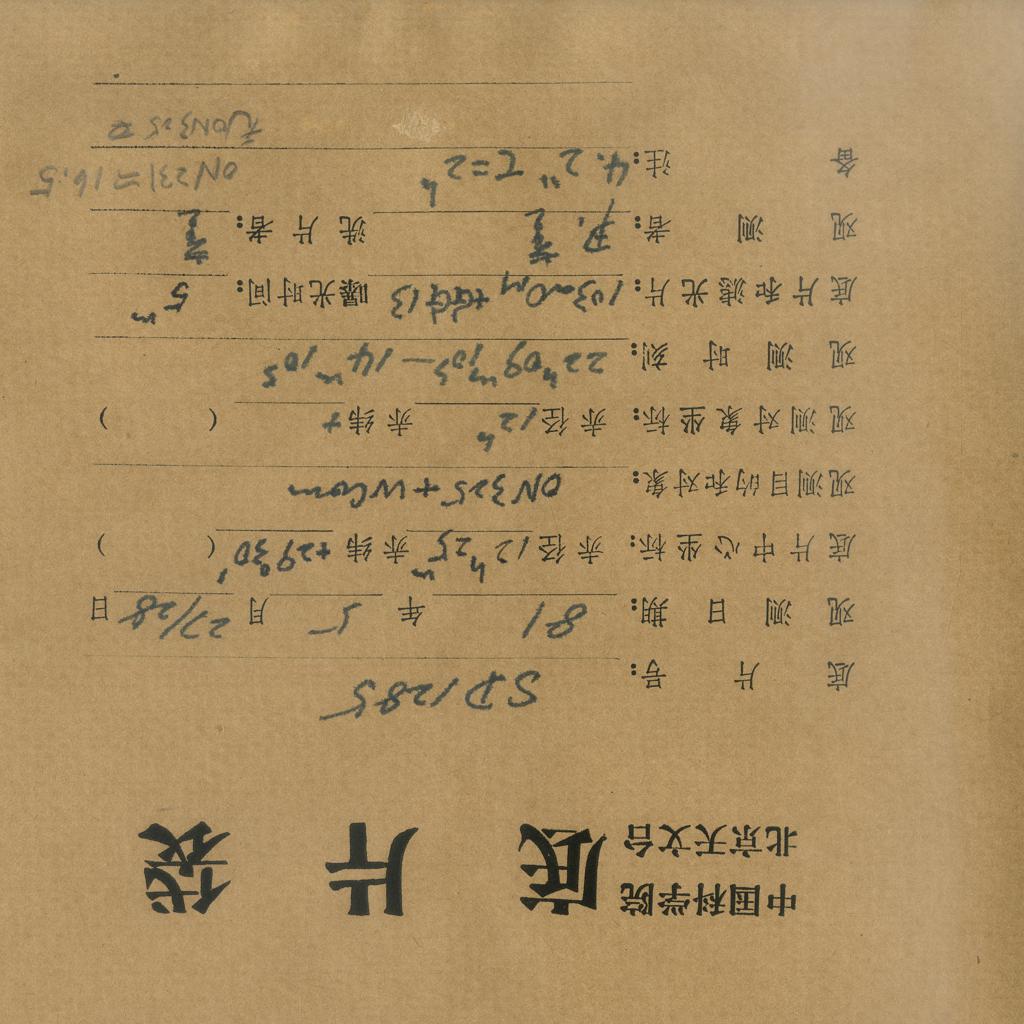 中国科学院
北京天文台
底片袋
底片号: SD1285
观测日期: 81年5月27/28日
底片中心坐标: 赤径12h25m赤纬+29°30′( )
观测目的和对象: ON325+WCom
观测对象坐标: 赤径12h赤纬+( )
观测时刻: 22h09m10s—14m10s
底片和滤光片: 103aO,M+GG13曝光时间: 5m
观测者: 洗片者:
备注: 4.2m τ=2h
ON231=16.5
ON325